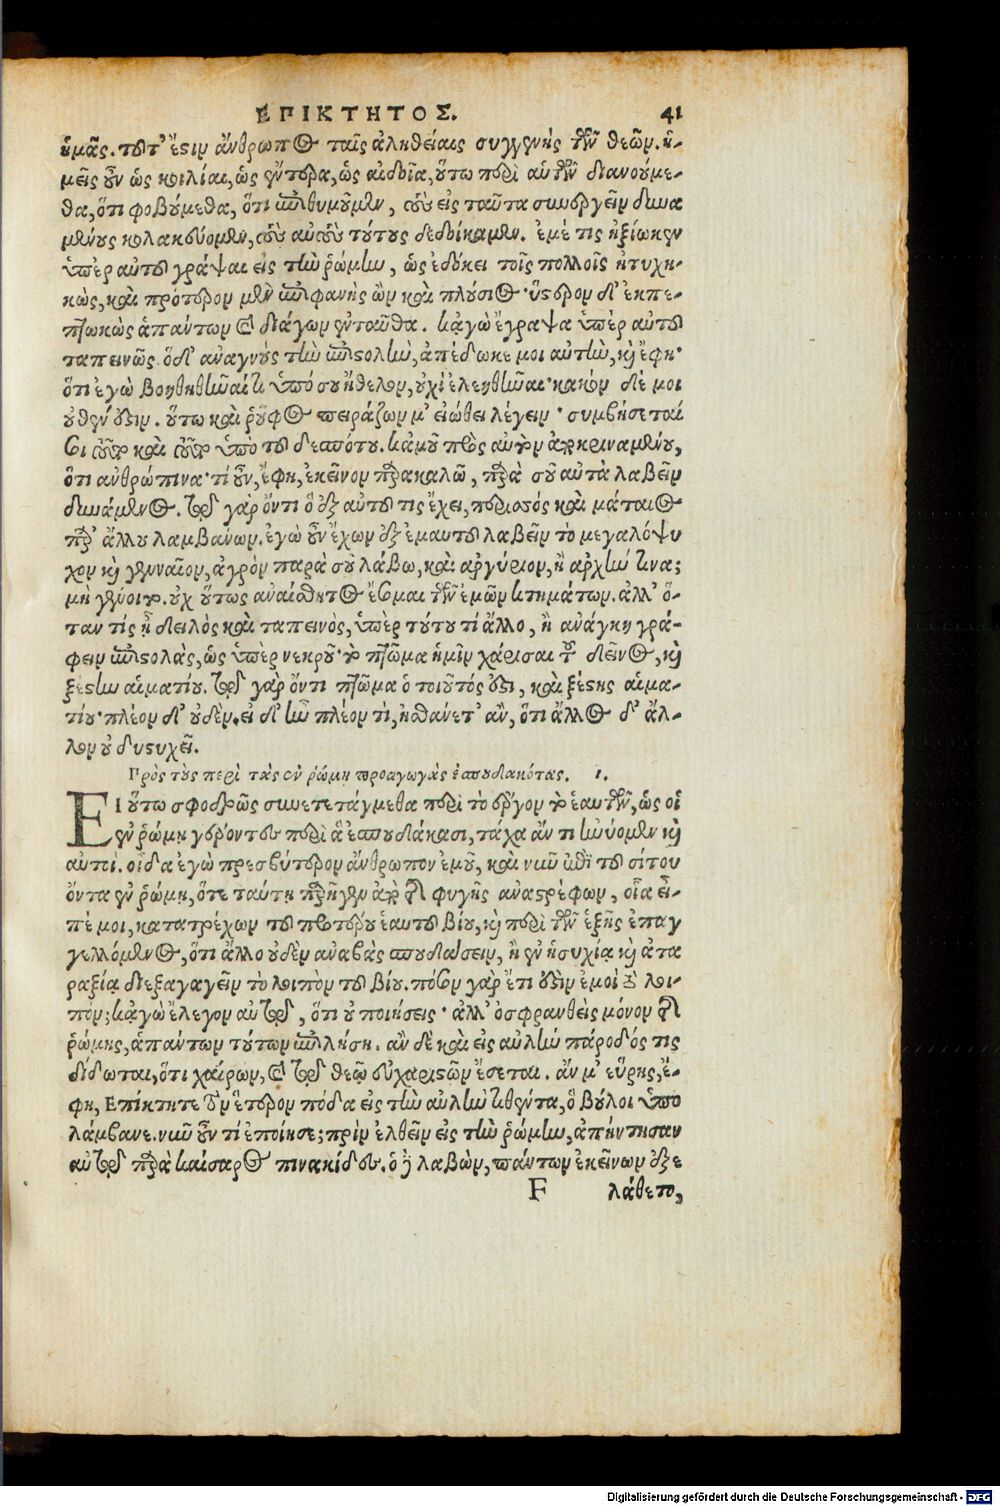 ΕΠΙΚΤΗΤΟΣ. 41
ἡμᾶς. τοῦτ' ἔστιν ἄνθρωπος ταῖς ἀληθείαις συγγενὴς τῶν θεῶν. ἡ-
μεῖς οὖν ὡς κοιλίαι, ὡς ἔντερα, ὡς αἰδοῖα, οὕτω περὶ αὑτῶν διανοούμε-
θα, ὅτι φοβούμεθα, ὅτι ἐπιθυμοῦμεν, τοὺς εἰς ταῦτα συνεργεῖν δυνα
μένους κολακεύομεν, τοὺς αὐτοὺς τούτους δεδοίκαμεν. ἐμέ τις ἠξίωκεν
ὑπὲρ αὐτοῦ γράψαι εἰς τὴν ῥώμην, ὡς ἐδόκει τοῖς πολλοῖς ἠτυχη-
κὼς, καὶ πρότερον μὲν ἐπιφανὴς ὢν καὶ πλούσιος· ὕστερον δ' ἐκπε-
πτωκὼς ἁπάντων καὶ διάγων ἐνταῦθα. κἀγὼ ἔγραψα ὑπὲρ αὐτοῦ
ταπεινῶς. ὁ δ' ἀναγνοὺς τὴν ἐπιστολὴν, ἀπέδωκέ μοι αὐτὴν, καὶ ἔφη·
ὅτι ἐγὼ βοηθηθῆναί τι ὑπό σου ἤθελον, οὐχὶ ἐλεηθῆναι· κακὸν δέ μοι
οὐθέν ἐστιν. οὕτω καὶ ῥοῦφος πειράζων μ' εἰώθει λέγειν· συμβήσεταί
σοι τοῦτο καὶ τοῦτο ὑπὸ τοῦ δεσπότου. κἀμοῦ πρὸς αὐτὸν ἀποκριναμένου,
ὅτι ἀνθρώπινα· τί οὖν, ἔφη, ἐκεῖνον παρακαλῶ, παρὰ σοῦ αὐτὰ λαβεῖν
δυνάμενος. τῷ γὰρ ὄντι ὃ ἐξ αὑτοῦ τις ἔχει, περισσός καὶ μάταιος
παρ' ἄλλου λαμβάνων. ἐγὼ οὖν ἔχων ἐξ ἐμαυτοῦ λαβεῖν τὸ μεγαλόψυ
χον καὶ γενναῖον, ἀγρὸν παρὰ σοῦ λάβω, καὶ ἀργύριον, ἢ ἀρχήν τινα;
μὴ γένοιτο. οὐχ οὕτως ἀναίσθητος ἔσομαι τῶν ἐμῶν κτημάτων. ἀλλ' ὅ-
ταν τίς ᾖ δειλὸς καὶ ταπεινὸς, ὑπὲρ τούτου τί ἄλλο, ἢ ἀνάγκη γρά-
φειν ἐπιστολὰς, ὡς ὑπὲρ νεκροῦ· τὸ πτῶμα ἡμῖν χάρισαι τοῦ δεῖνος, καὶ
ξέστην αἱματίου. τῷ γὰρ ὄντι πτῶμα ὁ τοιοῦτός ἐστι, καὶ ξέστης αἱμα-
τίου· πλέον δ' οὐδέν. εἰ δ' ἦν πλέον τὶ, ᾐσθάνετ' ἂν, ὅτι ἄλλος δ' ἄλ-
λον οὐ δυστυχεῖ.
Πρὸς τοὺς περὶ τὰς ἐν ῥώμῃ προαγωγὰς ἐσπουδακότας. ι.
ΕΙ οὕτω σφοδρῶς συνετετάγμεθα περὶ τὸ ἔργον τὸ ἑαυτῶν, ὡς οἱ
ἐν ῥώμῃ γέροντες περὶ ἃ ἐσπουδάκασι, τάχα ἄν τι ἠνύομεν καὶ
αὐτοί. οἶδα ἐγὼ πρεσβύτερον ἄνθρωπον ἐμοῦ, καὶ νῦν ἐπὶ τοῦ σίτου
ὄντα ἐν ῥώμῃ, ὅτε ταύτῃ παρῆγεν ἀπὸ τῆς φυγῆς ἀναστρέφων, οἷα εἶ-
πέ μοι, κατατρέχων τοῦ προτέρου ἑαυτοῦ βίου, καὶ περὶ τῶν ἑξῆς ἐπαγ
γελλόμενος, ὅτι ἄλλο οὐδὲν ἀναβὰς σπουδάσειν, ἢ ἐν ἡσυχίᾳ καὶ ἀτα
ραξίᾳ διεξαγαγεῖν τὸ λοιπὸν τοῦ βίου. πόσον γὰρ ἔτι ἐστὶν ἐμοὶ τὸ λοι-
πόν; κἀγὼ ἔλεγον αὐτῷ, ὅτι οὐ ποιήσεις· ἀλλ' ὀσφρανθεὶς μόνον τῆς
ῥώμης, ἁπάντων τούτων ἐπιλήσῃ. ἂν δὲ καὶ εἰς αὐλὴν πάροδός τις
δίδωται, ὅτι χαίρων, καὶ τῷ θεῷ εὐχαριστῶν ἔσεται. ἄν μ' εὕρῃς, ἔ-
φη, Ἐπίκτητε τὸν ἕτερον πόδα εἰς τὴν αὐλὴν τιθέντα, ὃ βούλοι ὑπο
λάμβανε. νῦν οὖν τί ἐποίησε; πρὶν ἐλθεῖν εἰς τὴν ῥώμην, ἀπήντησαν
αὐτῷ παρὰ καίσαρος πινακίδες. ὁ δὲ λαβὼν, πάντων ἐκείνων ἐξε
F λάθετο,
Digitalisierung gefördert durch die Deutsche Forschungsgemeinschaft - DFG